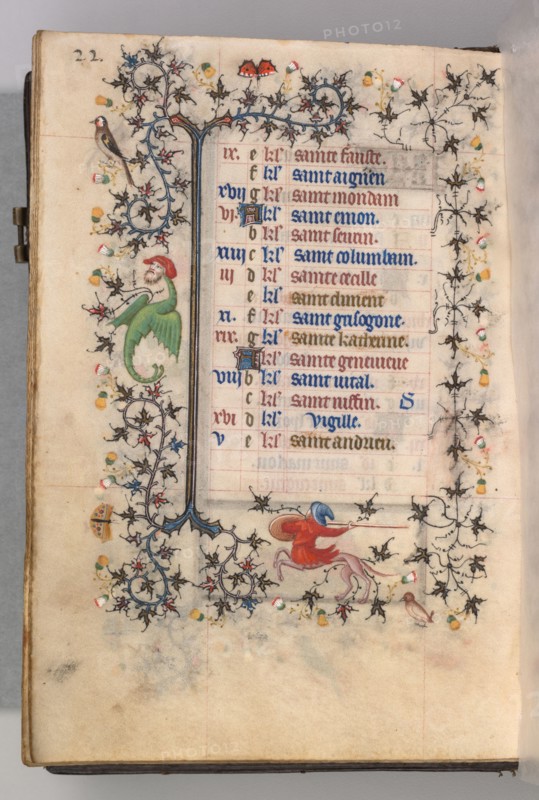 22.
ix. e kl' sainte fauste.
f kl' saint aignen
xvij g kl' saint mondain
vj. A kl' saint emon.
b kl' saint seurin.
xiiij c kl' saint columbain.
iij d kl' sainte cecille
e kl' saint climent
xi. f kl' saint grisogone.
xix. g kl' sainte katherine.
A kl' sainte genevieve
viij b kl' saint vital.
c kl' saint S
xvi d kl' vigille.
v e kl' saint andrieu.
PHOTO12